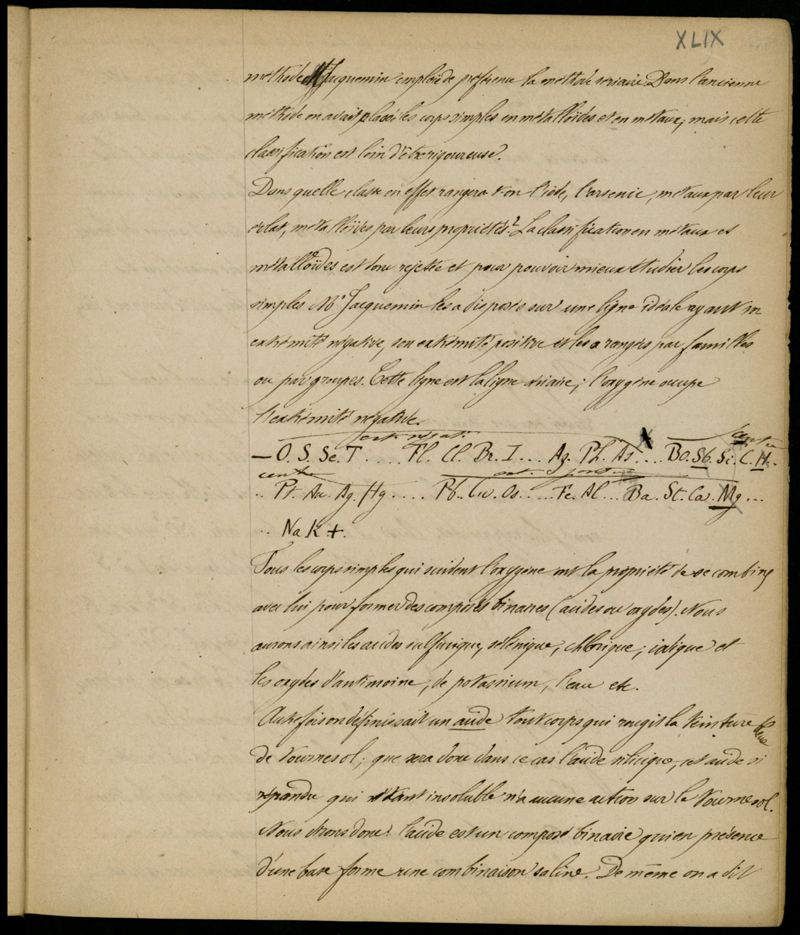 XLIX
méthode Mr Jacquemin emploie de préférence la méthode sériaire. Dans l'ancienne
méthode on avait placé les corps simples en métalloïdes et en métaux, mais cette
classification est loin d'être rigoureuse.
Dans quelle classe en effet rangera-t-on l'iode, l'arsenic, métaux par leur
éclat, métalloïdes par leurs propriétés? La classification en métaux et
métalloïdes est donc rejetée et pour pouvoir mieux étudier les corps
simples Mr Jacquemin les a disposés sur une ligne idéale ayant son
extrémité négative, son extrémité positive et les a rangés par familles
ou par groupes. Cette ligne est la ligne sériaire; l'oxygène occupe
l'extrémité négative.
extr négati centre
– O. S. Se. T..... Fl. Cl. Br. I.... Az. Ph. As.... Bo. Sb. Si. C. H..
centre
.. Pt. Au. Ag. Hg..... Pb. Cu. Os.... Fe. Al... Ba. St. Ca. Mg...
.. Na K +.
Tous les corps simples qui suivent l'oxygène ont la propriété de se combiner
avec lui pour former des composés binaires (acides ou oxydes). Nous
aurons ainsi les acides sulfurique, sélénique, chlorique, iodique et
les oxydes d'antimoine, de potassium, l'eau etc.
Autrefois on définissait un acide tout corps qui rougit la teinture bleue
de tournesol; que sera donc dans ce cas l'acide silicique, cet acide si
répandu qui étant insoluble n'a aucune action sur le tournesol.
Nous dirons donc: l'acide est un composé binaire qui en présence
d'une base forme une combinaison saline. De même on a dit